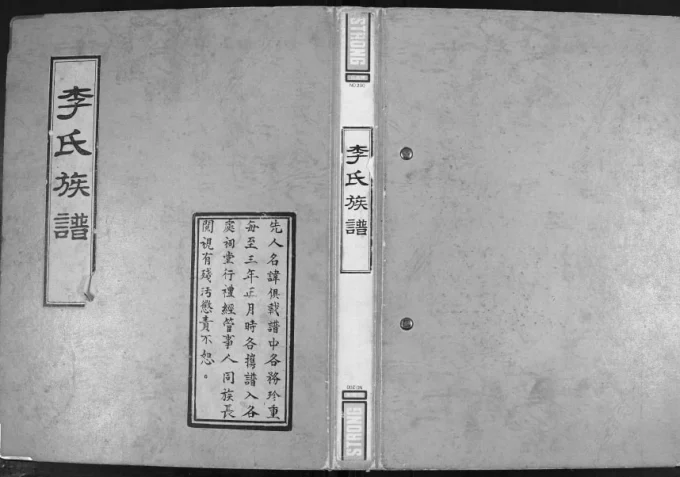 李氏族譜
先人名諱俱載譜中各將珍重
每至三年正月時各攜譜入各
處祠堂行禮經管事人同族長
閱視有殘污懲責不恕。
STRONG
李氏族譜
STRONG